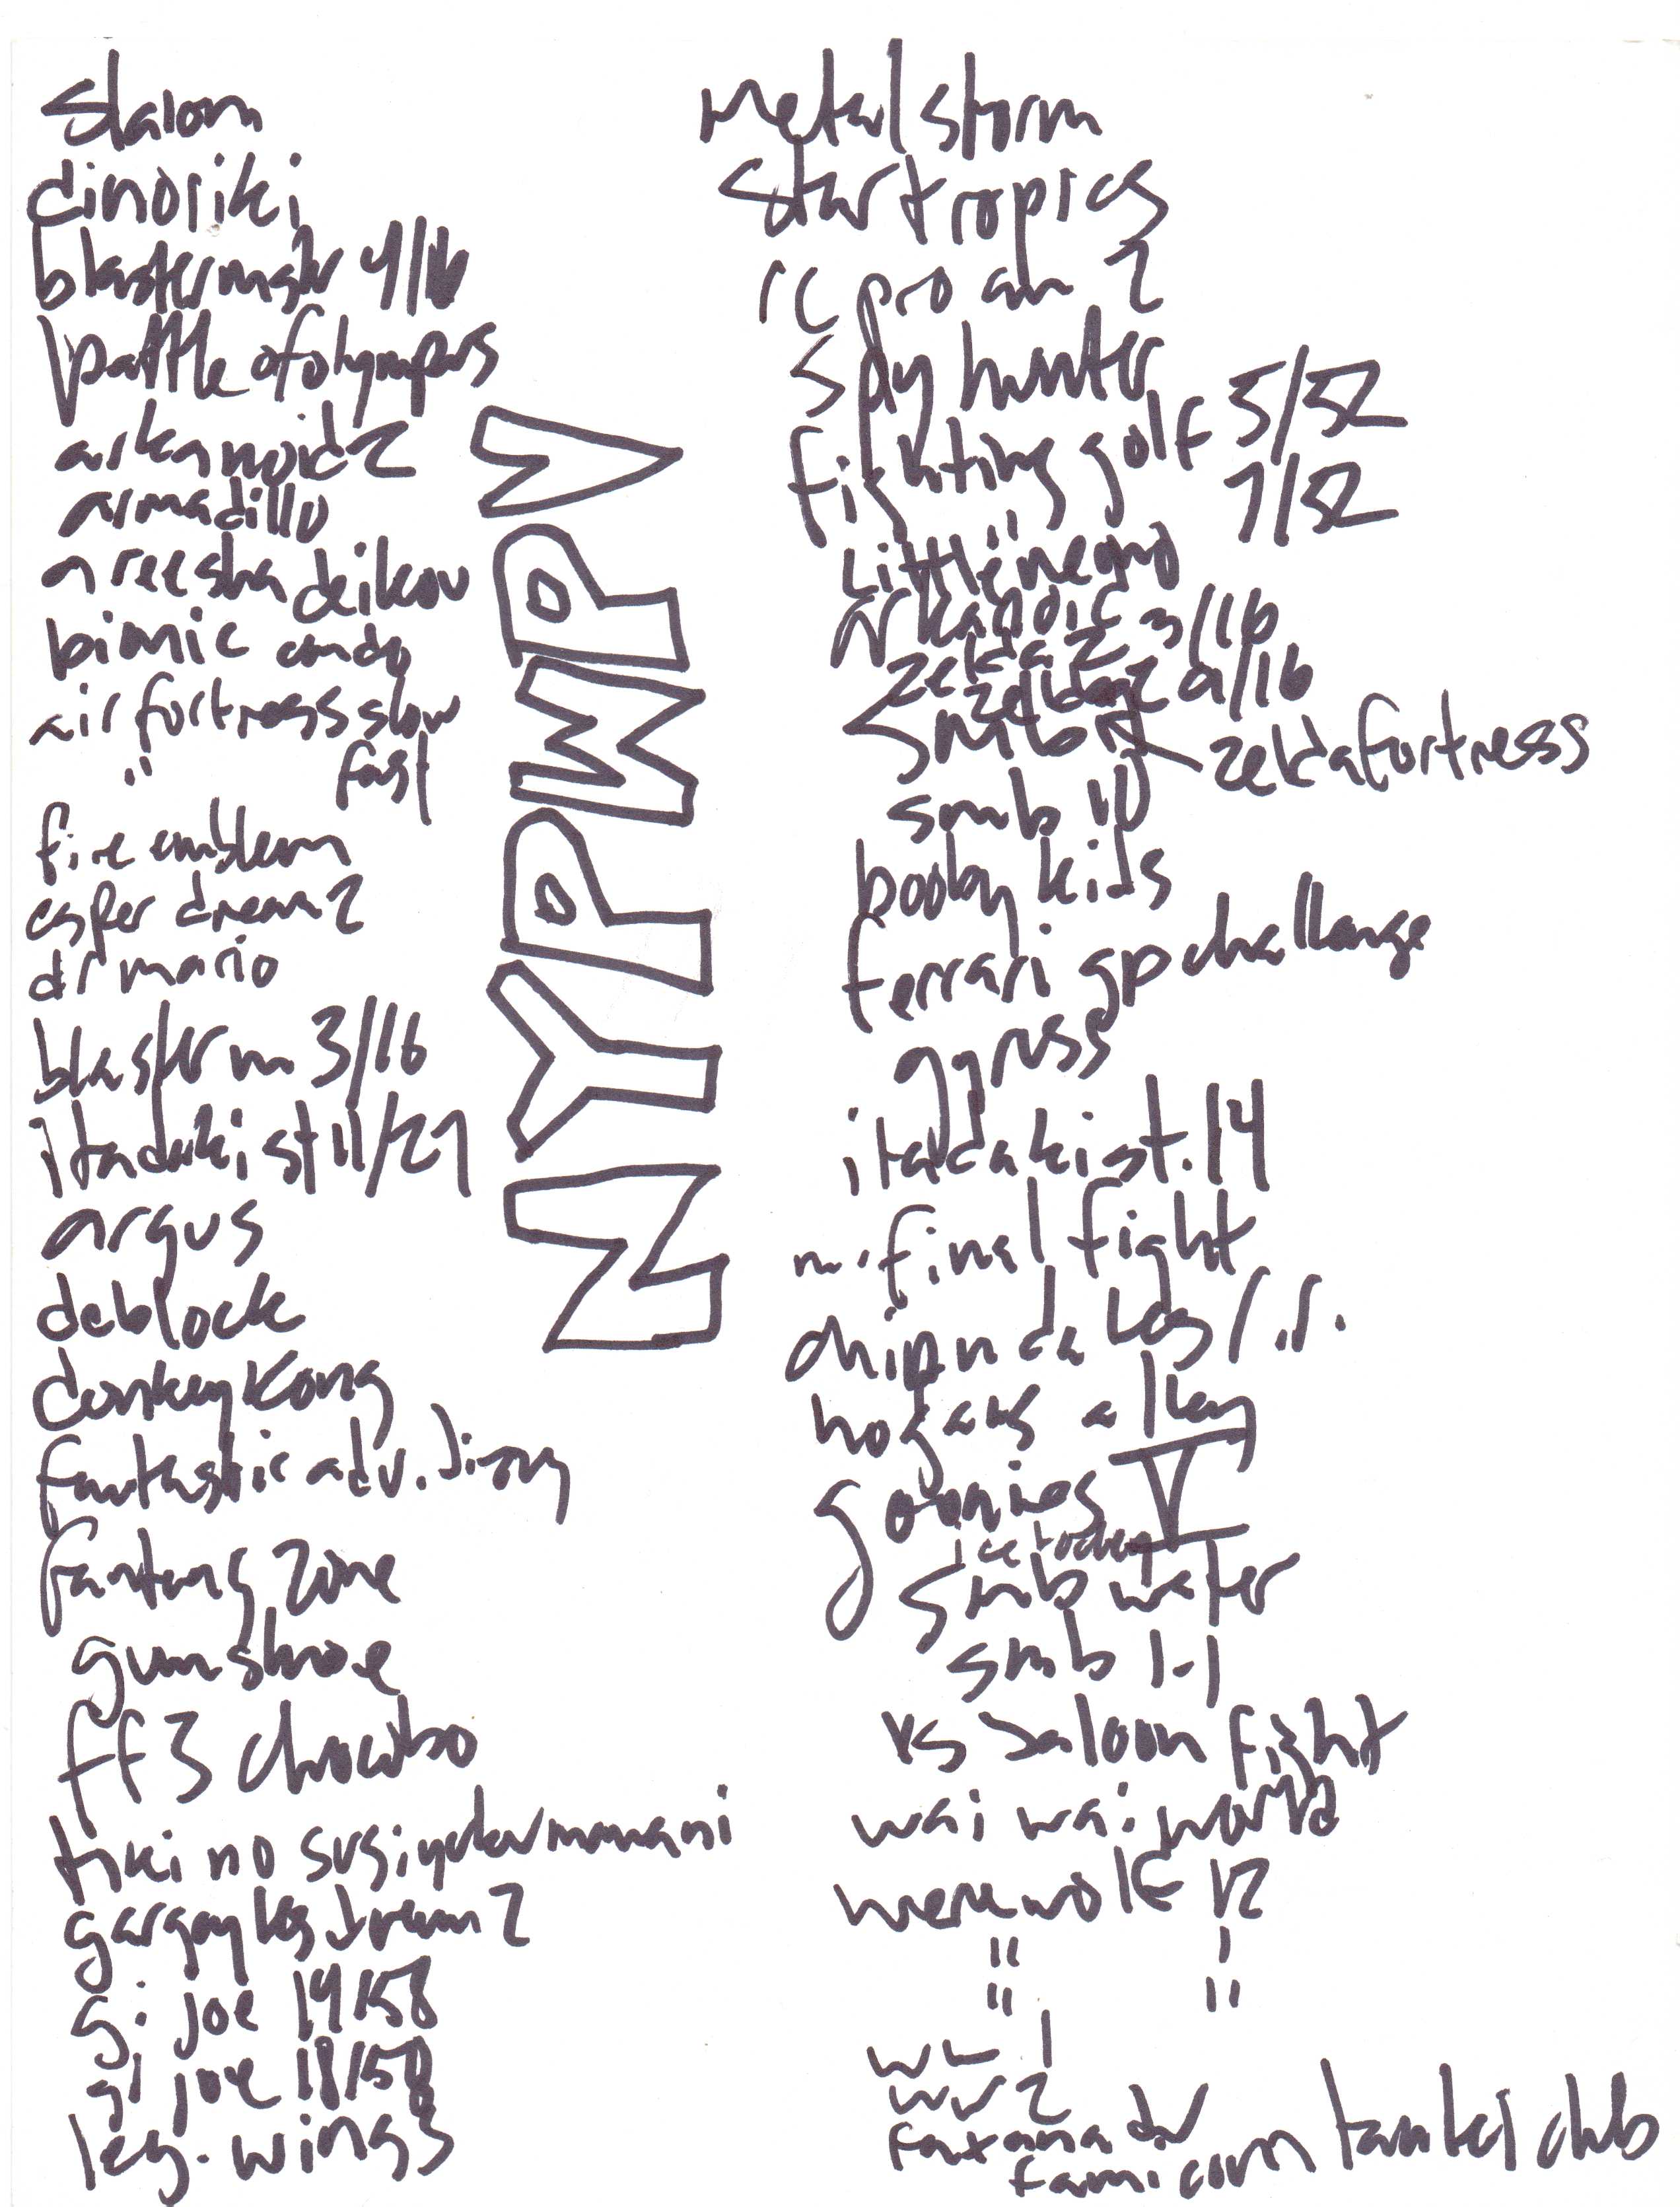 slalom
dinoriki
blastermstr 4/16
battle of olympus
arkanoid 2
armadillo
areesha deikou
bionic cmdo
air fortress slow
" fast
fire emblem
esper dream 2
dr mario
blaster m 3/16
itadaki st 11/27
argus
deblock
donkey Kong
fantastic adv. dizzy
fantasy zone
gumshoe
ff3 chocobo
gargoyles dream 2
gi joe
gi joe
leg. wings
NYPWPV
Metal storm
startropics
rc pro am 2
spy hunter
fighting golf 5/32
" 7/32
Little nemo
arkanoid 3/16
zelda 2
9/16
zelda fortress
smb
booby kids
ferrari gp challange
aggress
itadaki st. 14
m. final fight
chip n dales r.r.
hogans alley
goonies
smb water
smb 1-1
vs saloon fight
wai wai world
werewolf 12
" 1
" 11
WL 1
WW 2
faxanadu
famicom tantei club